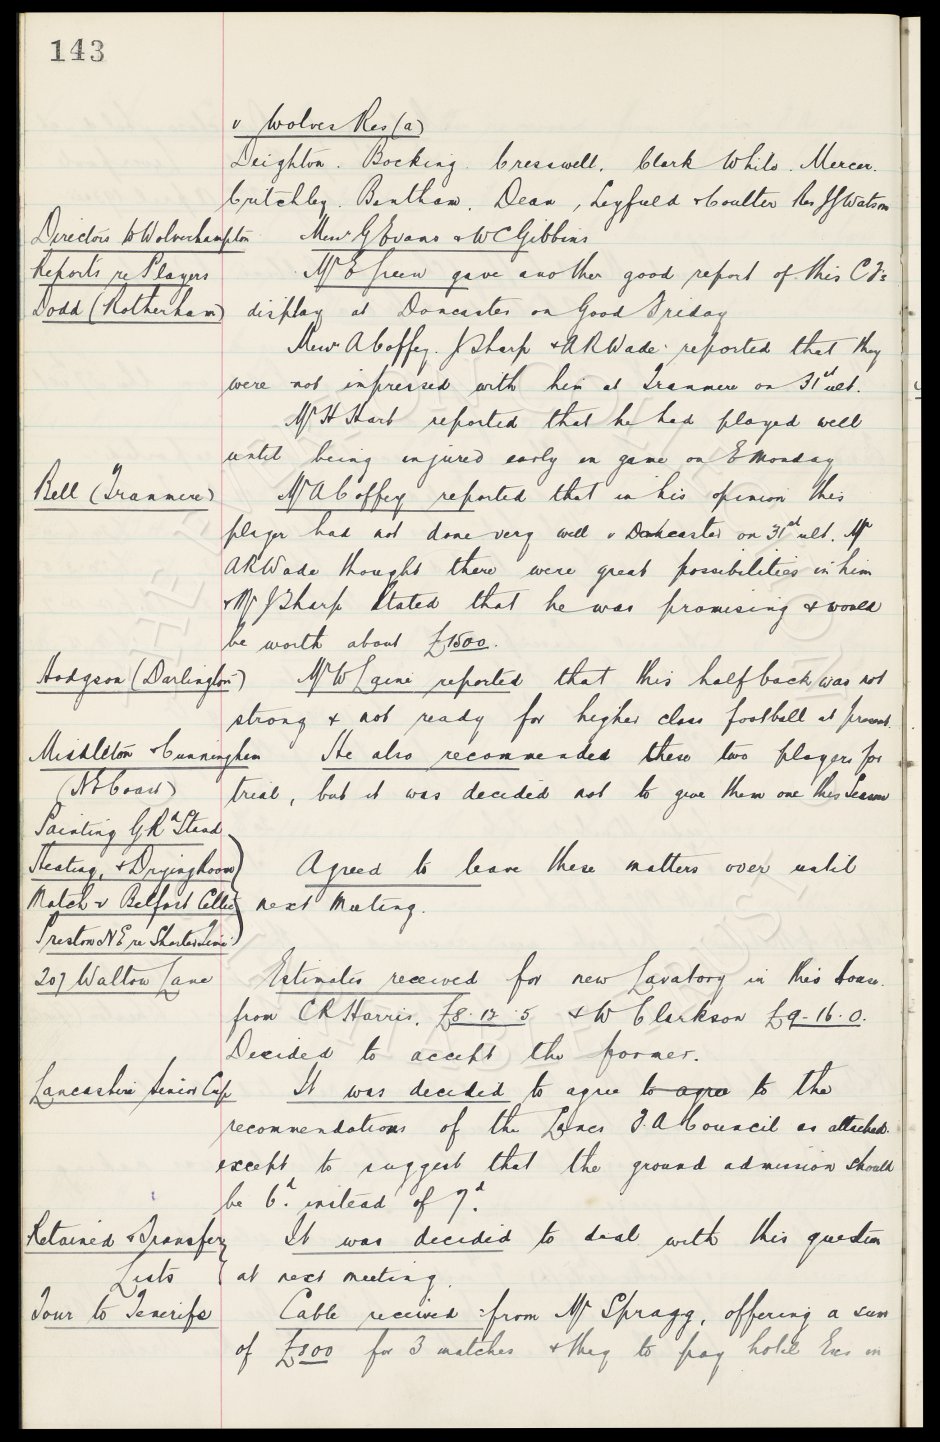 143
v Wolves Res (a)
Deighton. Bocking. Cresswell. Clark White. Mercer.
Critchley. Bentham. Dean, Leyfield & Coulter Res JJ Watson
Directors to Wolverhampton Messrs G Evans & W C Gibbins
Reports re Players Mr E Green gave another good report of this C F's
Dodd (Rotherham) display at Doncaster on Good Friday
Messrs A Coffey. J Sharp & A R Wade reported that they
were not impressed with him at Tranmere on 31st ult.
Mr H Hart reported that he had played well
until being injured early in game on E Monday
Bell (Tranmere) Mr A Coffey reported that in his opinion this
player had not done very well v Doncaster on 31st ult. Mr
A R Wade thought there were great possibilities in him
& Mr J Sharp stated that he was promising & would
be worth about £1500.
Hodgson (Darlington) Mr W reported that this half back was not
strong & not ready for higher class football at present.
Middleton & Cunningham He also recommended these two players for
(N E Coast) trial, but it was decided not to give them one this Season
Painting G Rd Stand
Heating, & Drying Room Agreed to leave these matters over until
Match v Belfast Celtic next meeting.
Preston N E re Shorter Time
207 Walton Lane Estimates received for new Lavatory in this house.
from C R Harris. £8.12.5 & W Clarkson £9-16.0.
Decided to accept the former.
Lancashire Senior Cup It was decided to agree to agree to the
recommendations of the Lancs F.A Council as attached.
except to suggest that the ground admission should
be 6d. instead of 7d.
Retained & Transfer It was decided to deal with this question
Lists at next meeting.
Tour to Tenerife Cable received from Mr Spragg, offering a sum
of £300 for 3 matches & they to pay hotel Exs in